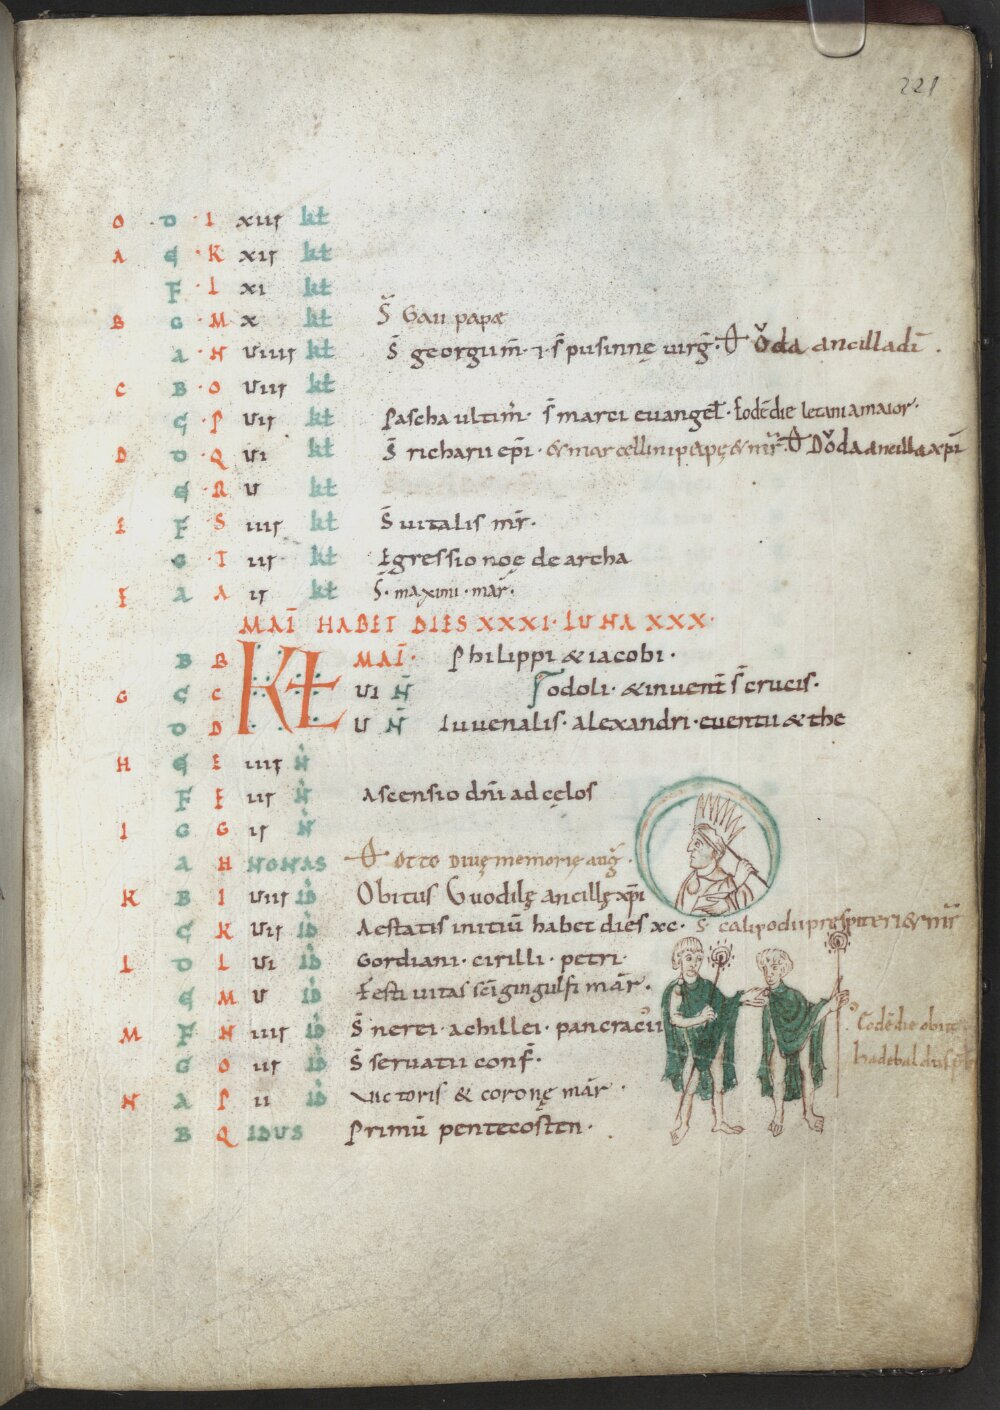 221
O D I xiiị kƚ
A E K xii kƚ
F L xi kƚ
B G M x kƚ S̄ Gaii papae
A N uiiii kƚ S̄ georgii m̄· ⁊· s̄ pusinnę uirḡ· Oda ancilla dī·
C B O uiii kƚ
C P uii kƚ Pascha ultim̄· s̄ marci euangeƚ· Eodē die letania maior·
D D Q ui kƚ S̄ richarii ep̄i· & marcellini papę & mr̄· Doda ancilla xp̄i
E R u kƚ
E F S iiii kƚ S̄ uitalis mr̄·
G T iii kƚ Egressio noę de archa
F A A ii kƚ S̄· maximi· mar̄·
MAĪ HABET DIES XXXI· LUNA XXX·
B B KƚL MAĪ· Philippi & iacobi·
G C C UI N̄ Todoli· & inuent̄ s̄ crucis·
D D U N̄ Iuuenalis· alexandri· euentii & the
H E E iiii N̄
F F iii N̄ Ascensio dn̄i ad cęlos
I G G ii N̄
A H NONAS Otto diuę memorię auḡ·
K B I uiii ID̄ Obitus Guodilę ancillę xp̄i
C K uii ID̄ Aestatis initiū habet dies xc· S̄· calipodii prespiteri & mr̄
L D L ui ID̄ Gordiani· cirilli· petri·
E M u ID̄ Festiuitas sc̄i gingulfi mār·
M F N iiii ID̄ S̄ nerei· achillei· pancracii
Eodē die obiit
G O iii ID̄ S̄ seruatii conf̄·
hadebaldus
N A P ii ID̄ Victoris & coronę mār·
B Q IDUS Primū pentecosten·